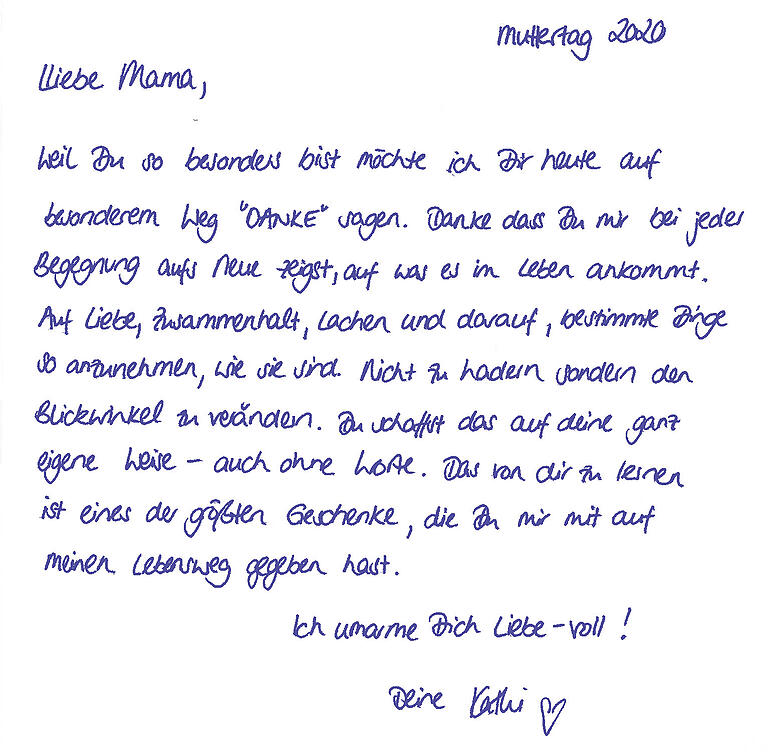 Muttertag 2020
Liebe Mama,
Weil Du so besonders bist möchte ich Dir heute auf
besonderem Weg "DANKE" sagen. Danke dass Du mir bei jeder
Begegnung aufs Neue zeigst, auf was es im Leben ankommt.
Auf Liebe, Zusammenhalt, Lachen und darauf, bestimmte Dinge
so anzunehmen, wie sie sind. Nicht zu hadern sondern den
Blickwinkel zu verändern. Du schaffst das auf deine ganz
eigene Weise - auch ohne Worte. Das von dir zu lernen
ist eines der größten Geschenke, die Du mir mit auf
meinen Lebensweg gegeben hast.
Ich umarme Dich Liebe-voll!
Deine Kathi ♡